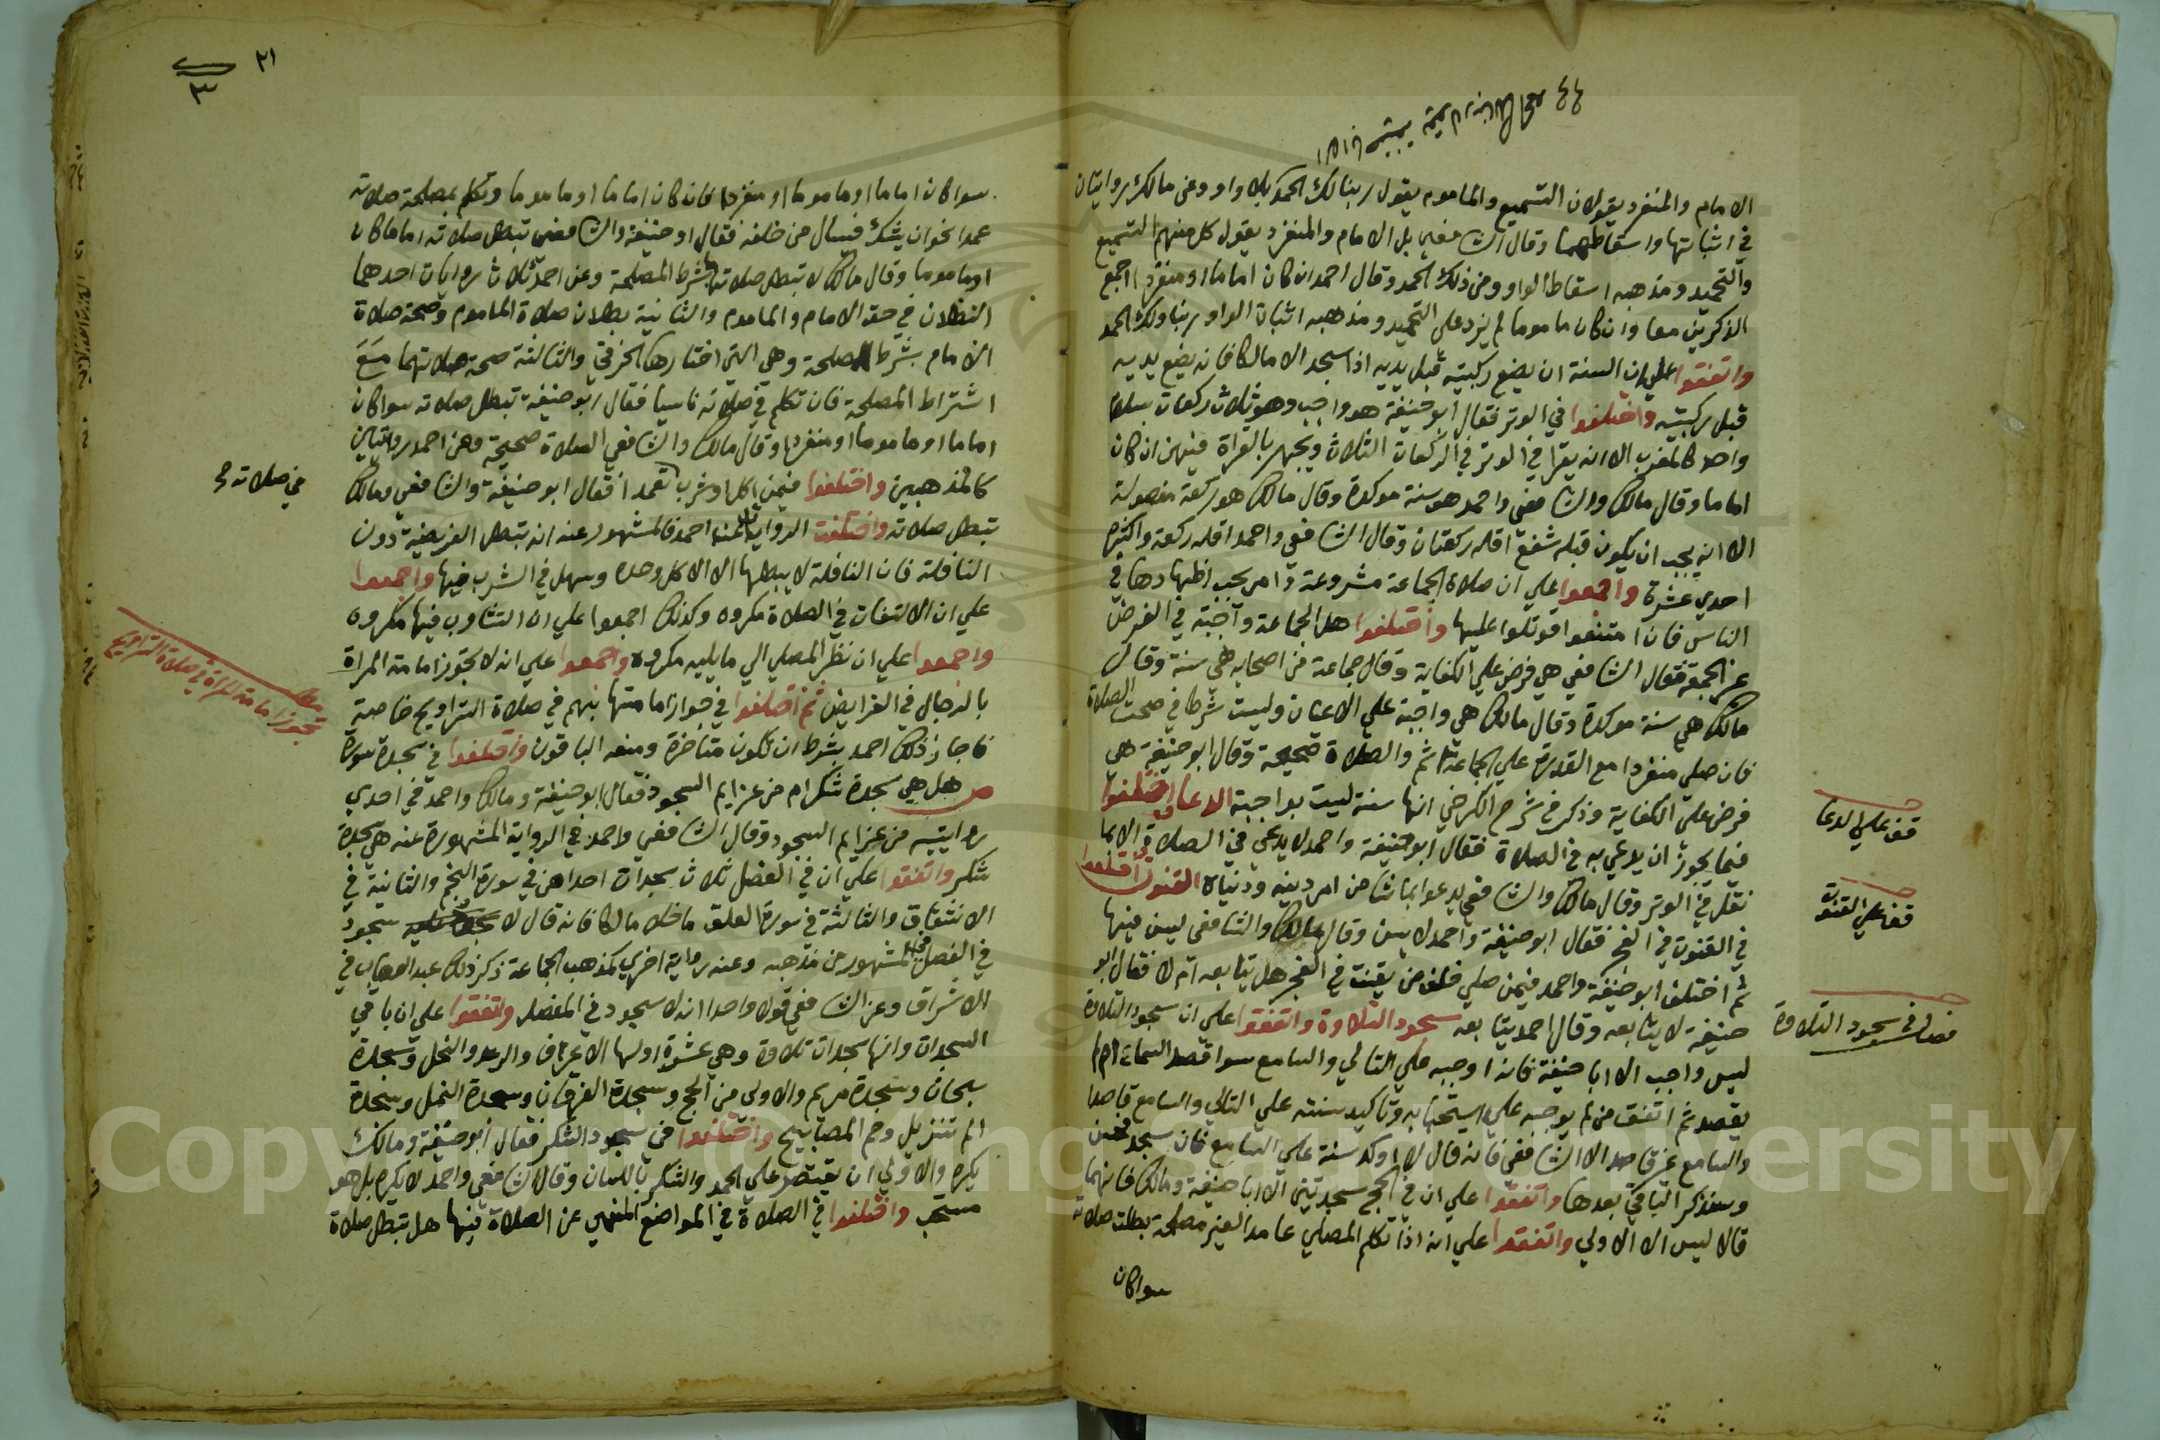 الامام والمنفرد يقولان التسميع والماموم يقول ربنا لك الحمد بلا واو وعن مالك روايتان
في اثباتها واسقاطهما وقال الشافعي بل الامام والمنفرد يقول كل منهم التسميع
والتحميد ومذهبه اسقاط الواو ومن ذلك الحمد وقال احمد ان كان اماما او منفردا جمع
الذكرين معا وان كان ماموما لم يزد على التحميد ومذهبه اثبات الواو ربنا ولك الحمد
واتفقوا على ان السنة ان يضع ركبتيه قبل يديه اذا سجد الا مالكا فانه يضع يديه
قبل ركبتيه واختلفوا في الوتر فقال ابو حنيفة هو واجب وهو ثلاث ركعات بسلام
واحد كالمغرب الا انه يقرا في الوتر في الركعات الثلاث ويجهر بالقراة فيهن ان كان
اماما وقال مالك والشافعي واحمد هو سنة موكدة وقال مالك هو ركعة مفصولة
الا انه يجب ان يكون قبله شفع اقله ركعتان وقال الشافعي واحمد اقله ركعة واكثره
احدي عشرة واجمعوا على ان صلاة الجماعة مشروعة وامر يجب اظهارها في
الناس فان امتنعوا قوتلوا عليها واختلفوا هل الجماعة واجبة في الفرض
غير الجمعة فقال الشافعي هي فرض علي الكفاية وقال جماعة من اصحابه هي سنة وقال
مالك هي سنة موكدة وقال مالك هي واجبة علي الاعيان وليست شرطا في صحت الصلاة
فان صلي منفردا مع القدرة علي الجماعة اثم والصلاة صحيحة وقال ابو حنيفة هي
فرض علي الكفاية وذكر في شرح الكرخي انها سنة ليست بواجبة الدعا واختلفوا
فيما يجوز ان يدعي به في الصلاة فقال ابو حنيفة واحمد لا يدعي في الصلاة الا بما
نقل في الوتر وقال مالك والشافعي يدعوا بما شا من امر دينه ودنياه القنوت واختلفوا
في القنوت في الفجر فقال ابو حنيفة واحمد لا يسن وقال مالك والشافعي يسن فيها
ثم اختلف ابو حنيفة واحمد فيمن صلي خلف من يقنت في الفجر هل يتابعه ام لا فقال ابو
حنيفة لا يتابعه وقال احمد يتابعه سجود التلاوة واتفقوا علي ان سجود التلاوة
ليس واجب الا ابا حنيفة فانه اوجبه علي التالي والسامع سوا قصد السماع ام لم
يقصد ثم اتفق من لم يوجبه علي استحبابه وتاكيد سنته علي التالي والسامع قاصدا
والسامع غير قاصد الا الشافعي فانه قال لا اوكد سنة علي السامع فان سجد فحسن
وسنذكر الباقي بعدها واتفقوا علي ان في الحج سجدتين الا ابا حنيفة ومالك فانهما
قالا ليس الا الاولي واتفقوا علي انه اذا تكلم المصلي عامدا لغير مصلحة بطلت صلاته
سوا كان
قف علي الدعا
قف علي القنوت
فصل في سجود التلاوة
٢١
٣
سوا كان اماما او ماموما او منفردا فان كان اماما او ماموما وتكلم بمصلحة صلاته
عمدا نحو ان يشك فيسال من خلفه فقال ابو حنيفة والشافعي تبطل صلاته اماما كان
او ماموما وقال مالك لا تبطل صلاتهما بشرط المصلحة وعن احمد ثلاث روايات احدهما
البطلان في حق الامام والماموم والثانية بطلان صلاة الماموم وصحة صلاة
الامام بشرط المصلحة وهي التي اختارها الخرقي والثالثة صحة صلاتهما مع
اشتراط المصلحة فان تكلم في صلاته ناسيا فقال ابو حنيفة تبطل صلاته سوا كان
اماما او ماموما او منفردا وقال مالك والشافعي الصلاة صحيحة وعن احمد روايتين
كالمذهبين واختلفوا فيمن اكل او شرب تعمدا فقال ابو حنيفة والشافعي ومالك
تبطل صلاته واختلفت الروايات عند احمد فالمشهور عنه انه تبطل الفريضة دون
النافلة فان النافلة لا يبطلها الا الاكل وحده وسهل في الشرب فيها واجمعوا
علي ان الالتفات في الصلاة مكروه وكذلك اجمعوا علي ان التثاوب فيها مكروه
واجمعوا علي ان نظر المصلي الي ما يليه مكروه واجمعوا علي انه لا يجوز امامة المراة
بالرجال في الفرايض ثم اختلفوا في جواز امامتها بهم في صلاة التراويح خاصة
فاجاز ذلك احمد بشرط ان تكون متاخرة ومنعه الباقون واختلفوا في سجدة سورة
ص هل هي سجدة شكر ام من عزايم السجود فقال ابو حنيفة ومالك واحمد في احدي
روايتيه من عزايم السجود وقال الشافعي واحمد في الرواية المشهورة عنه هي سجدة
شكر واتفقوا علي ان في المفصل ثلاث سجدات احداهن في سورة النجم والثانية في
الانشقاق والثالثة في سورة العلق ما خلا مالكا فانه قال لا سجود
في المفصل في المشهور من مذهبه وعنه رواية اخري كمذهب الجماعة ذكر ذلك عبد الوهاب في
الاشراق وعن الشافعي قولا واحدا انه لا سجود في المفصل واتفقوا علي ان باقي
السجدات وانها سجدات تلاوة وهي عشرة اولها الاعراف والرعد والنحل وسجدة
سبحان وسجدة مريم والاولي من الحج وسجدة الفرقان وسجدة النمل وسجدة
الم تنزيل وحم المصابيح واختلفوا في سجود الشكر فقال ابو حنيفة ومالك
يكره والاولي ان يقتصر علي الحمد والشكر باللسان وقال الشافعي واحمد لا يكره بل هو
مستحب واختلفوا في الصلاة في المواضع المنهي عن الصلاة فيها هل تبطل صلاة
في صلاته
مطلب
تجوز امامة المراة في صلاة التراويح
Copyright © King Saud University